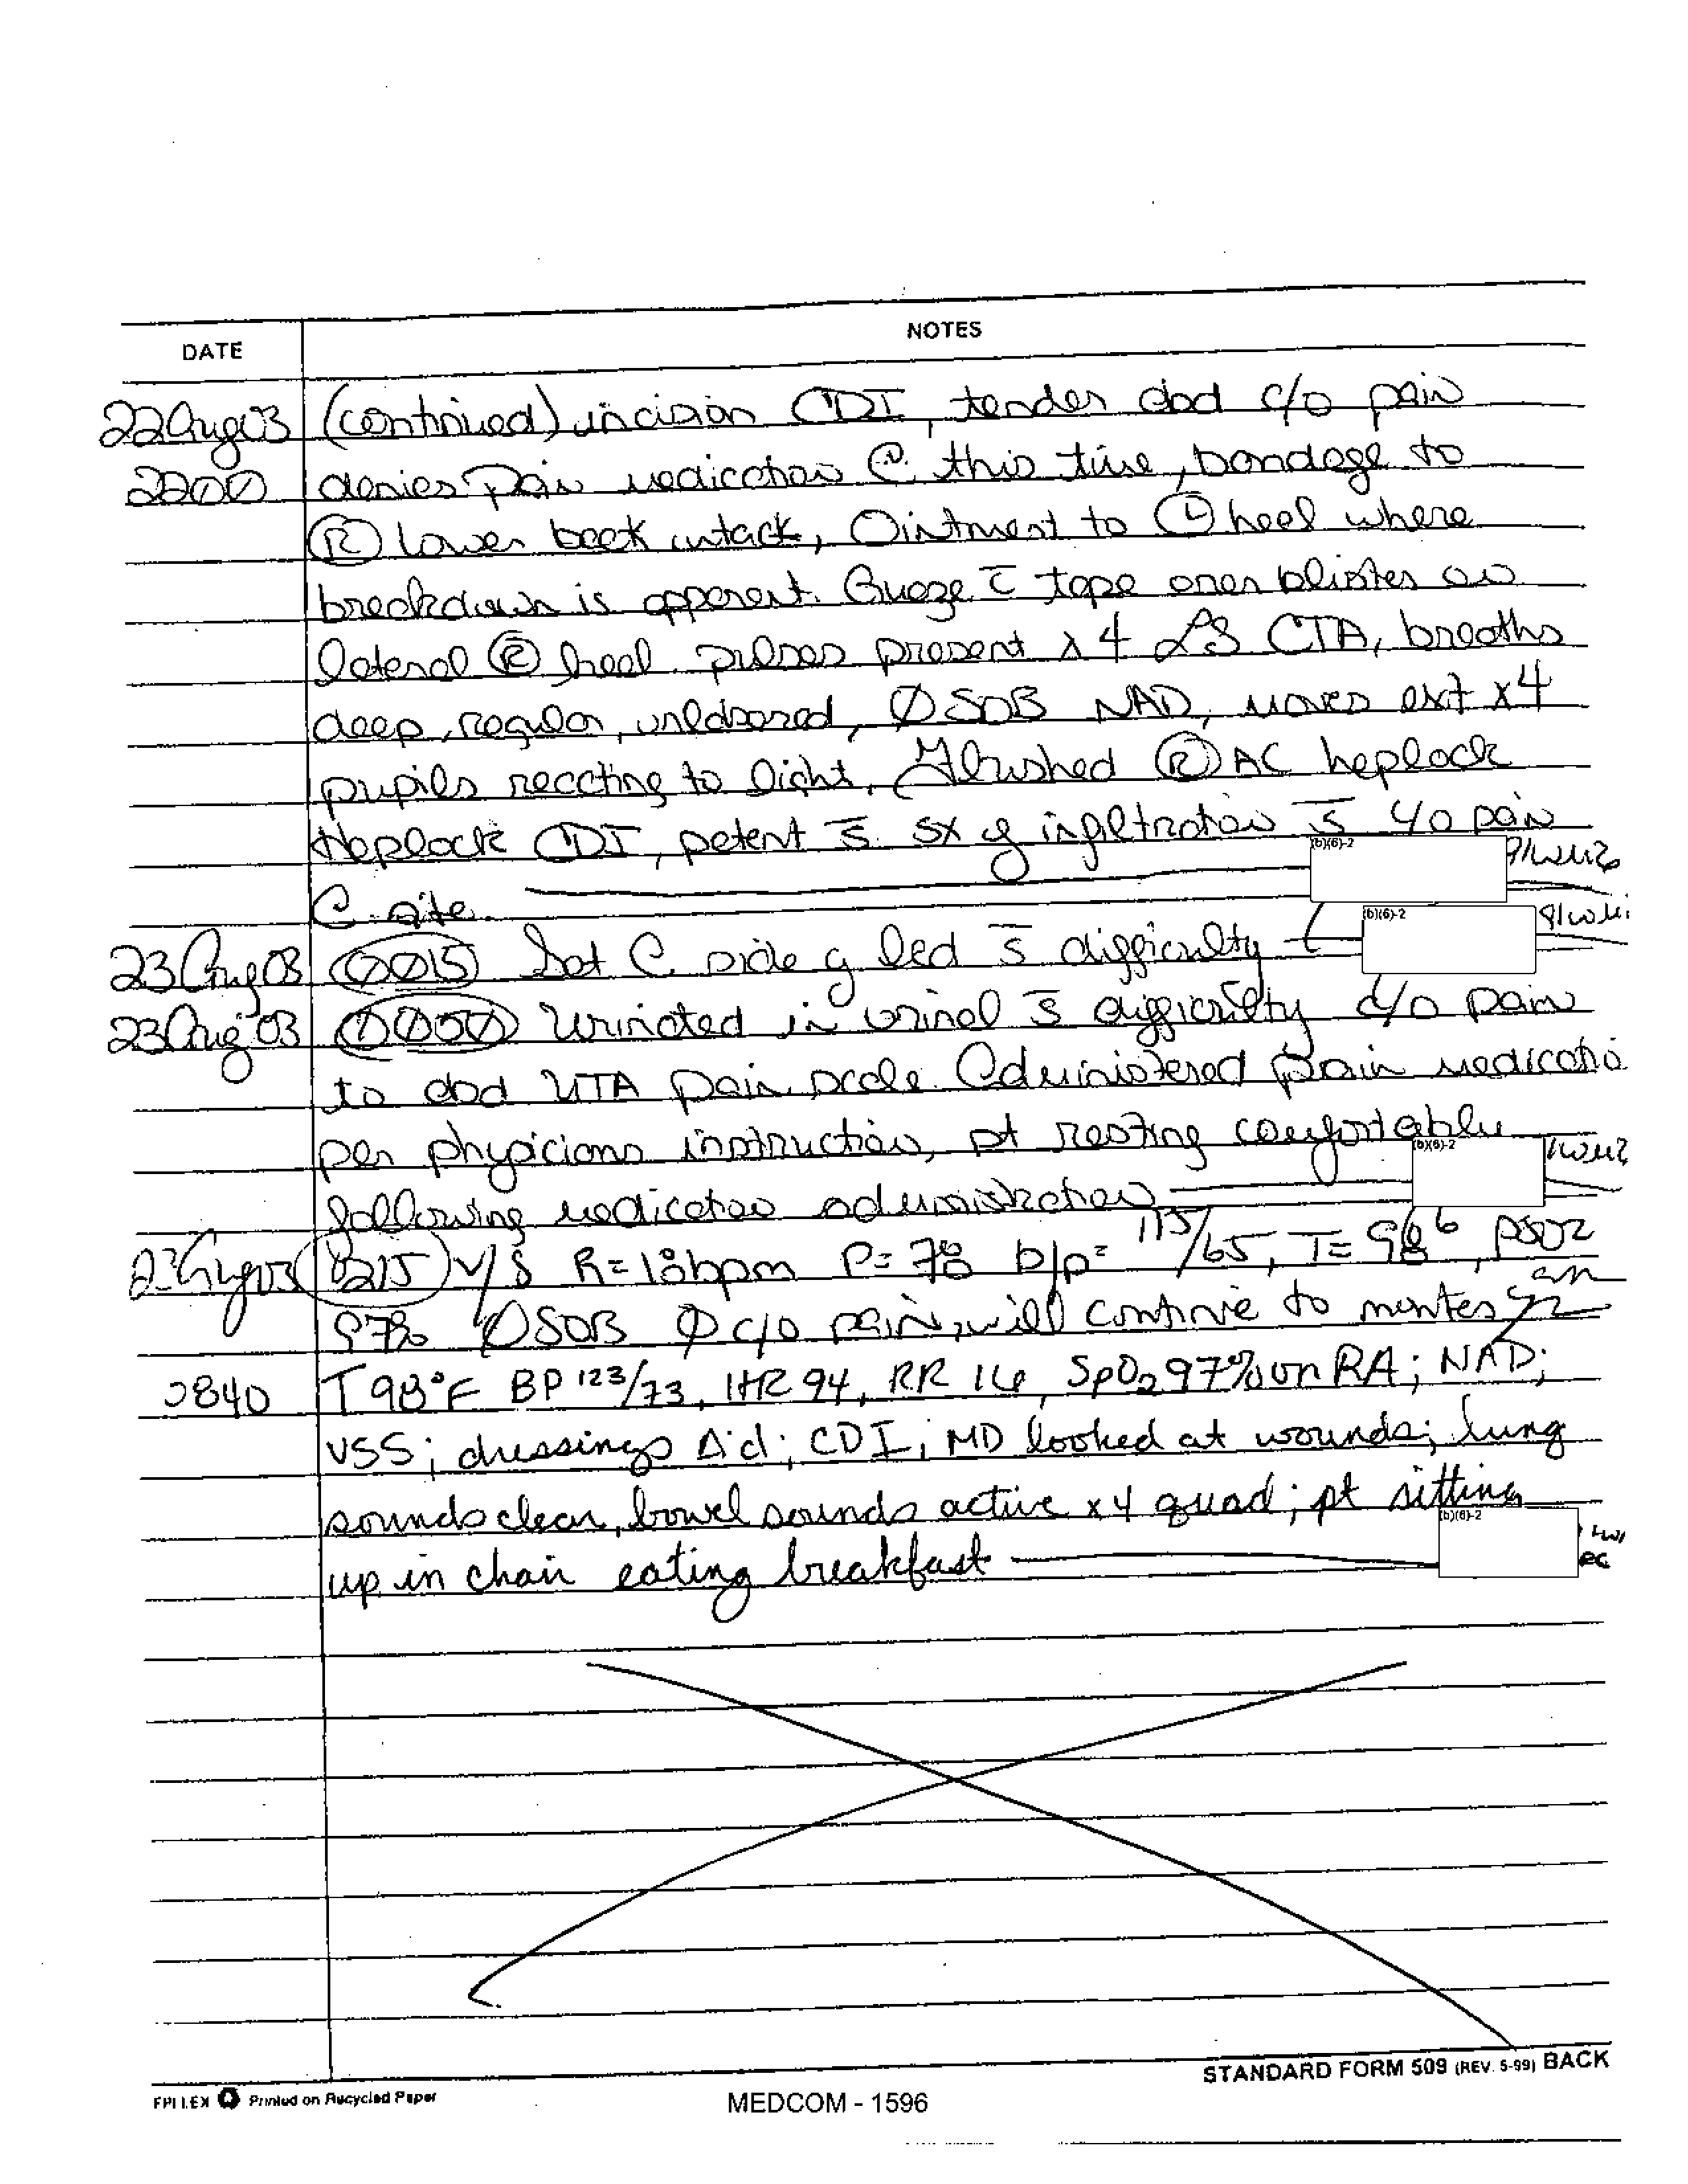 DATE NOTES
22Aug03 (continued) incision CDI, tender abd c/o pain
2200 denies pain medication @ this time, bandage to
Ⓡ lower back intack, Ointment to Ⓛ heel where
breakdown is apparent. Guaze c̅ tape over blister on
lateral Ⓡ heel. pulses present x 4 LS CTA, breaths
deep, regular, unlabored, Ø SOB NAD, moves ext x4
pupils reacting to light, Flushed Ⓡ AC heplock
Heplock CDI, patent s̅ sx of infiltration s̅ c/o pain
(b)(6)-2
@ site.
(b)(6)-2
23Aug03 0015 Sat @ side of bed s̅ difficulty
23Aug03 0050 Urinated in urinal s̅ difficulty c/o pain
to abd UTA pain scale. Administered pain medicatio
per physicians instruction, pt resting comfortable
(b)(6)-2
following medication administration
23Aug03 0215 V/S R=18bpm P=78 b/p= 115/65, T= 98⁶, PSO2
97% ØSOB Ø c/o pain, will continue to
0840 T 98°F BP 123/73, HR 94, RR 16, SpO₂ 97% on RA; NAD;
VSS; dressings Δ'd; CDI; MD looked at wounds; lung
sounds clear, bowel sounds active x4 quad; pt sitting
(b)(6)-2
up in chair eating breakfast
STANDARD FORM 509 (REV. 5-99) BACK
FPI LEX Printed on Recycled Paper
MEDCOM - 1596